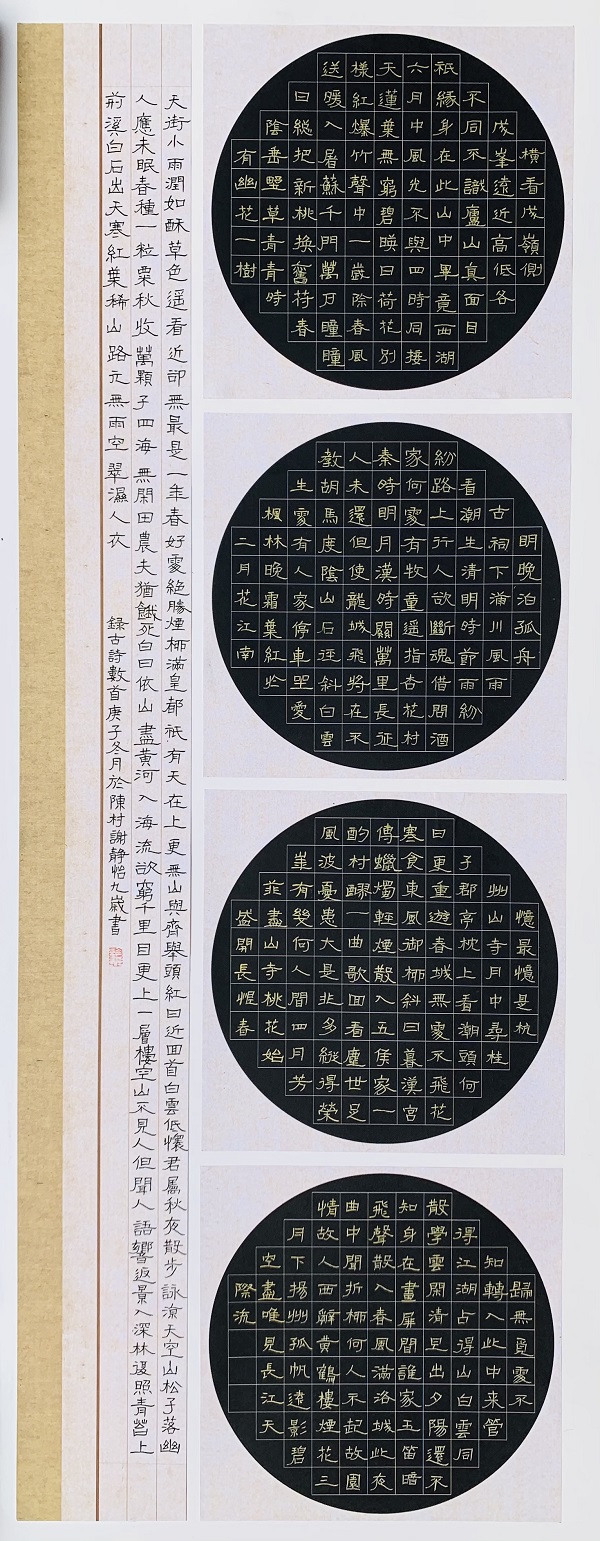 橫看成嶺側
成峯遠近高低各
不同不識廬山真面目
祇緣身在此山中畢竟西湖
六月中風光不與四時同接
天蓮葉無窮碧暎日荷花別
樣紅爆竹聲中一歲除春風
送暖入屠蘇千門萬戶曈曈
日總把新桃換舊符春
陰垂野草青青時
有幽花一樹
明晚泊孤舟
古祠下滿川風雨
看潮生清明時節雨紛
紛路上行人欲斷魂借問酒
家何處有牧童遙指杏花村
秦時明月漢時關萬里長征
人未還但使龍城飛將在不
教胡馬度陰山石逕斜白雲
生處有人家停車坐愛
楓林晚霜葉紅於
二月花江南
憶最憶是杭
州山寺月中尋桂
子郡亭枕上看潮頭何
日更重遊春城無處不飛花
寒食東風御柳斜日暮漢宮
傳蠟燭輕煙散入五侯家一
酌村醪一曲歌回看塵世足
風波憂患大是非多縱得榮
華有幾何人間四月芳
菲盡山寺桃花始
盛開長恨春
歸無覓處不
知轉入此中来管
得江湖占得山白雲同
散學雲閑清旦出夕陽還不
知身在畫屏間誰家玉笛暗
飛聲散入春風滿洛城此夜
曲中聞折柳何人不起故園
情故人西辭黃鶴樓煙花三
月下揚州孤帆遠影碧
空盡唯見長江天
際流
天街小雨潤如酥草色遥看近卻無最是一年春好處絕勝煙柳滿皇都祇有天在上更無山與齊舉頭紅日近回首白雲低懷君屬秋夜散步詠涼天空山松子落幽
人應未眠春種一粒粟秋收萬顆子四海無閑田農夫猶餓死白日依山盡黃河入海流欲窮千里目更上一層樓空山不見人但聞人語響返景入深林復照青苔上
荊溪白石出天寒紅葉稀山路元無雨空翠濕人衣
録古詩數首庚子冬月於陳村謝静怡九歲書